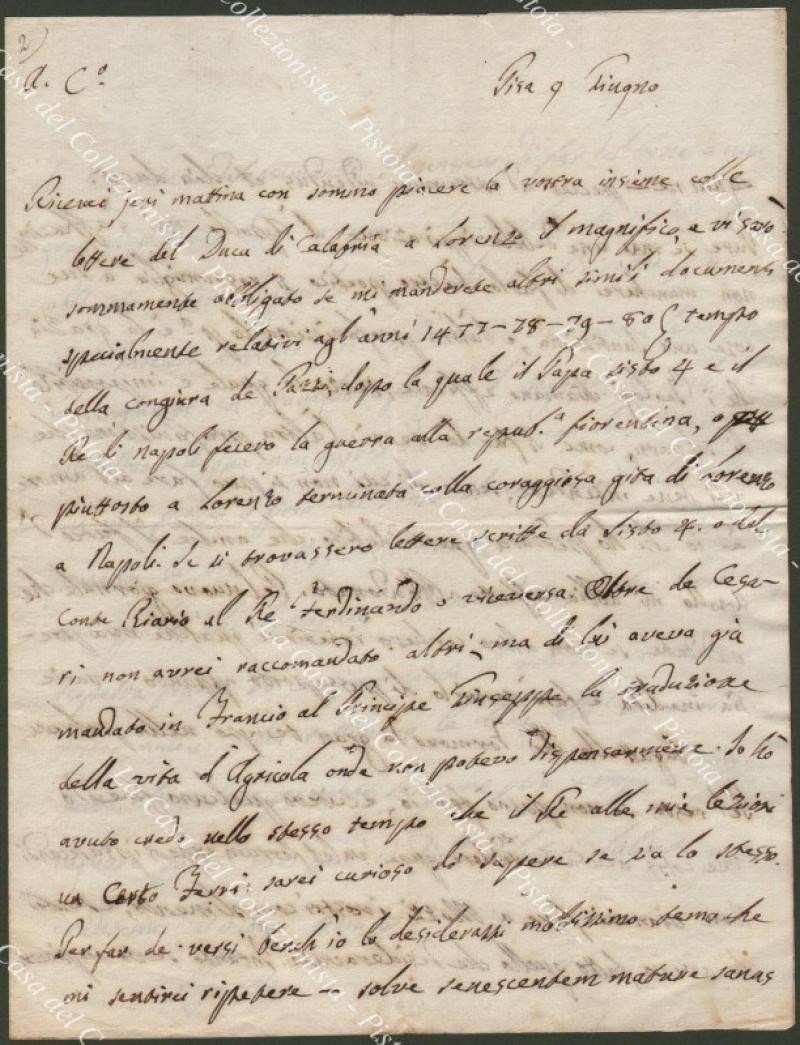 2)
A. C.º
Pisa 9 Giugno
Ricevei jeri mattina con sommo piacere la vostra insieme colle
lettere del Duca di Calabria a Lorenzo il magnifico, e vi sarò
sommamente obbligato se mi manderete altri simili documenti
specialmente relativi agl'anni 1477-78-79-80 tempo
della congiura de Pazzi, dopo la quale il Papa Sisto 4 e il
Re di Napoli fecero la guerra alla repub.ª fiorentina, o
piuttosto a Lorenzo terminata colla coraggiosa gita di Lorenzo
a Napoli. Se si trovassero lettere scritte da Sisto 4. o del
Conte Riario al Re Ferdinando o viceversa. Oltre de Cesa-
ri non avrei raccomandato altri, ma di lui aveva già
mandato in Francia al Principe Giuseppe la traduzione
della vita d'Agricola onde non potevo dispensarmene. Io hò
avuto credo nello stesso tempo che il Re alle mie lezioni
un certo Ferri: sarei curioso di sapere se sia lo stesso.
Per far de versi berch'io lo desiderassi moltissimo temo che
mi sentirei ripetere - solve senescentem mature sanas
La Casa del Collezionista - Pistoia -